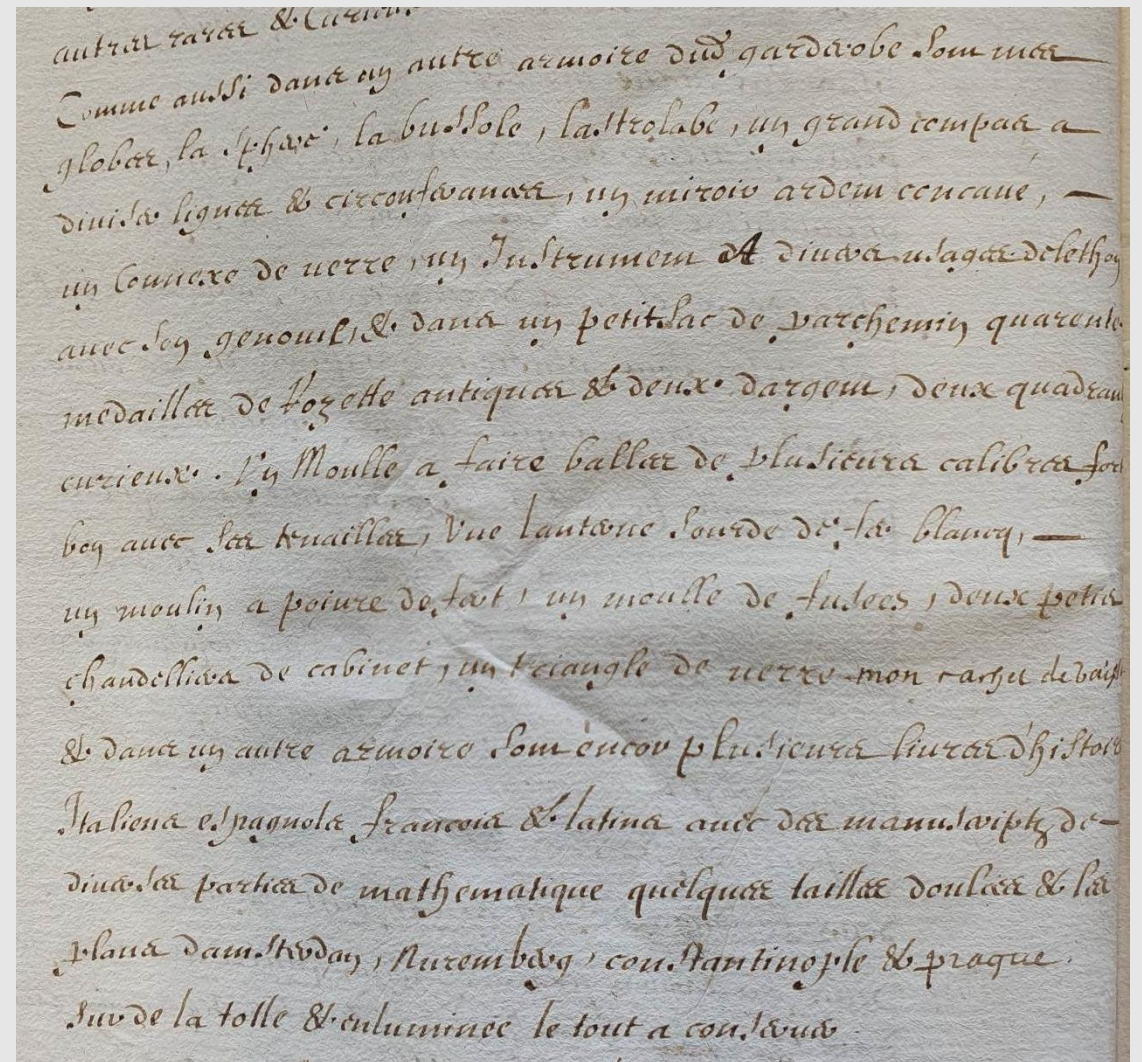 autres rares & curieux
Comme aussi dans un autre armoire dud garderobe sont mes
globes, la sphere, la bussole, lastrolabe, un grand compas a
diviser lignes & circonferances, un miroir ardent concaue,
un Connexe de uerre, un Instrument A diuers usages delethon
auec son genouil, & dans un petit sac de parchemin quarente
medailles de Rozette antiques & deux dargent, deux quadrans
curieux. Vn Moulle a faire balles de plusieurs calibres fort
bon auec ses tenailles, Vne lanterne sourde de fer blancq,
un moulin a poiure de fert, un moulle de fusees, deux petis
chandelliers de cabinet, un triangle de uerre mon cachet de
& dans un autre armoire sont encor plusieurs liures d'histoire
Italiens espagnols francois & latins auec des manuscriptz de
diuerses parties de mathematique quelques tailles doulces & les
plans damsterdan, Nuremberg, constantinople & prague.
sur de la tolle & enluminee le tout a conseruer.